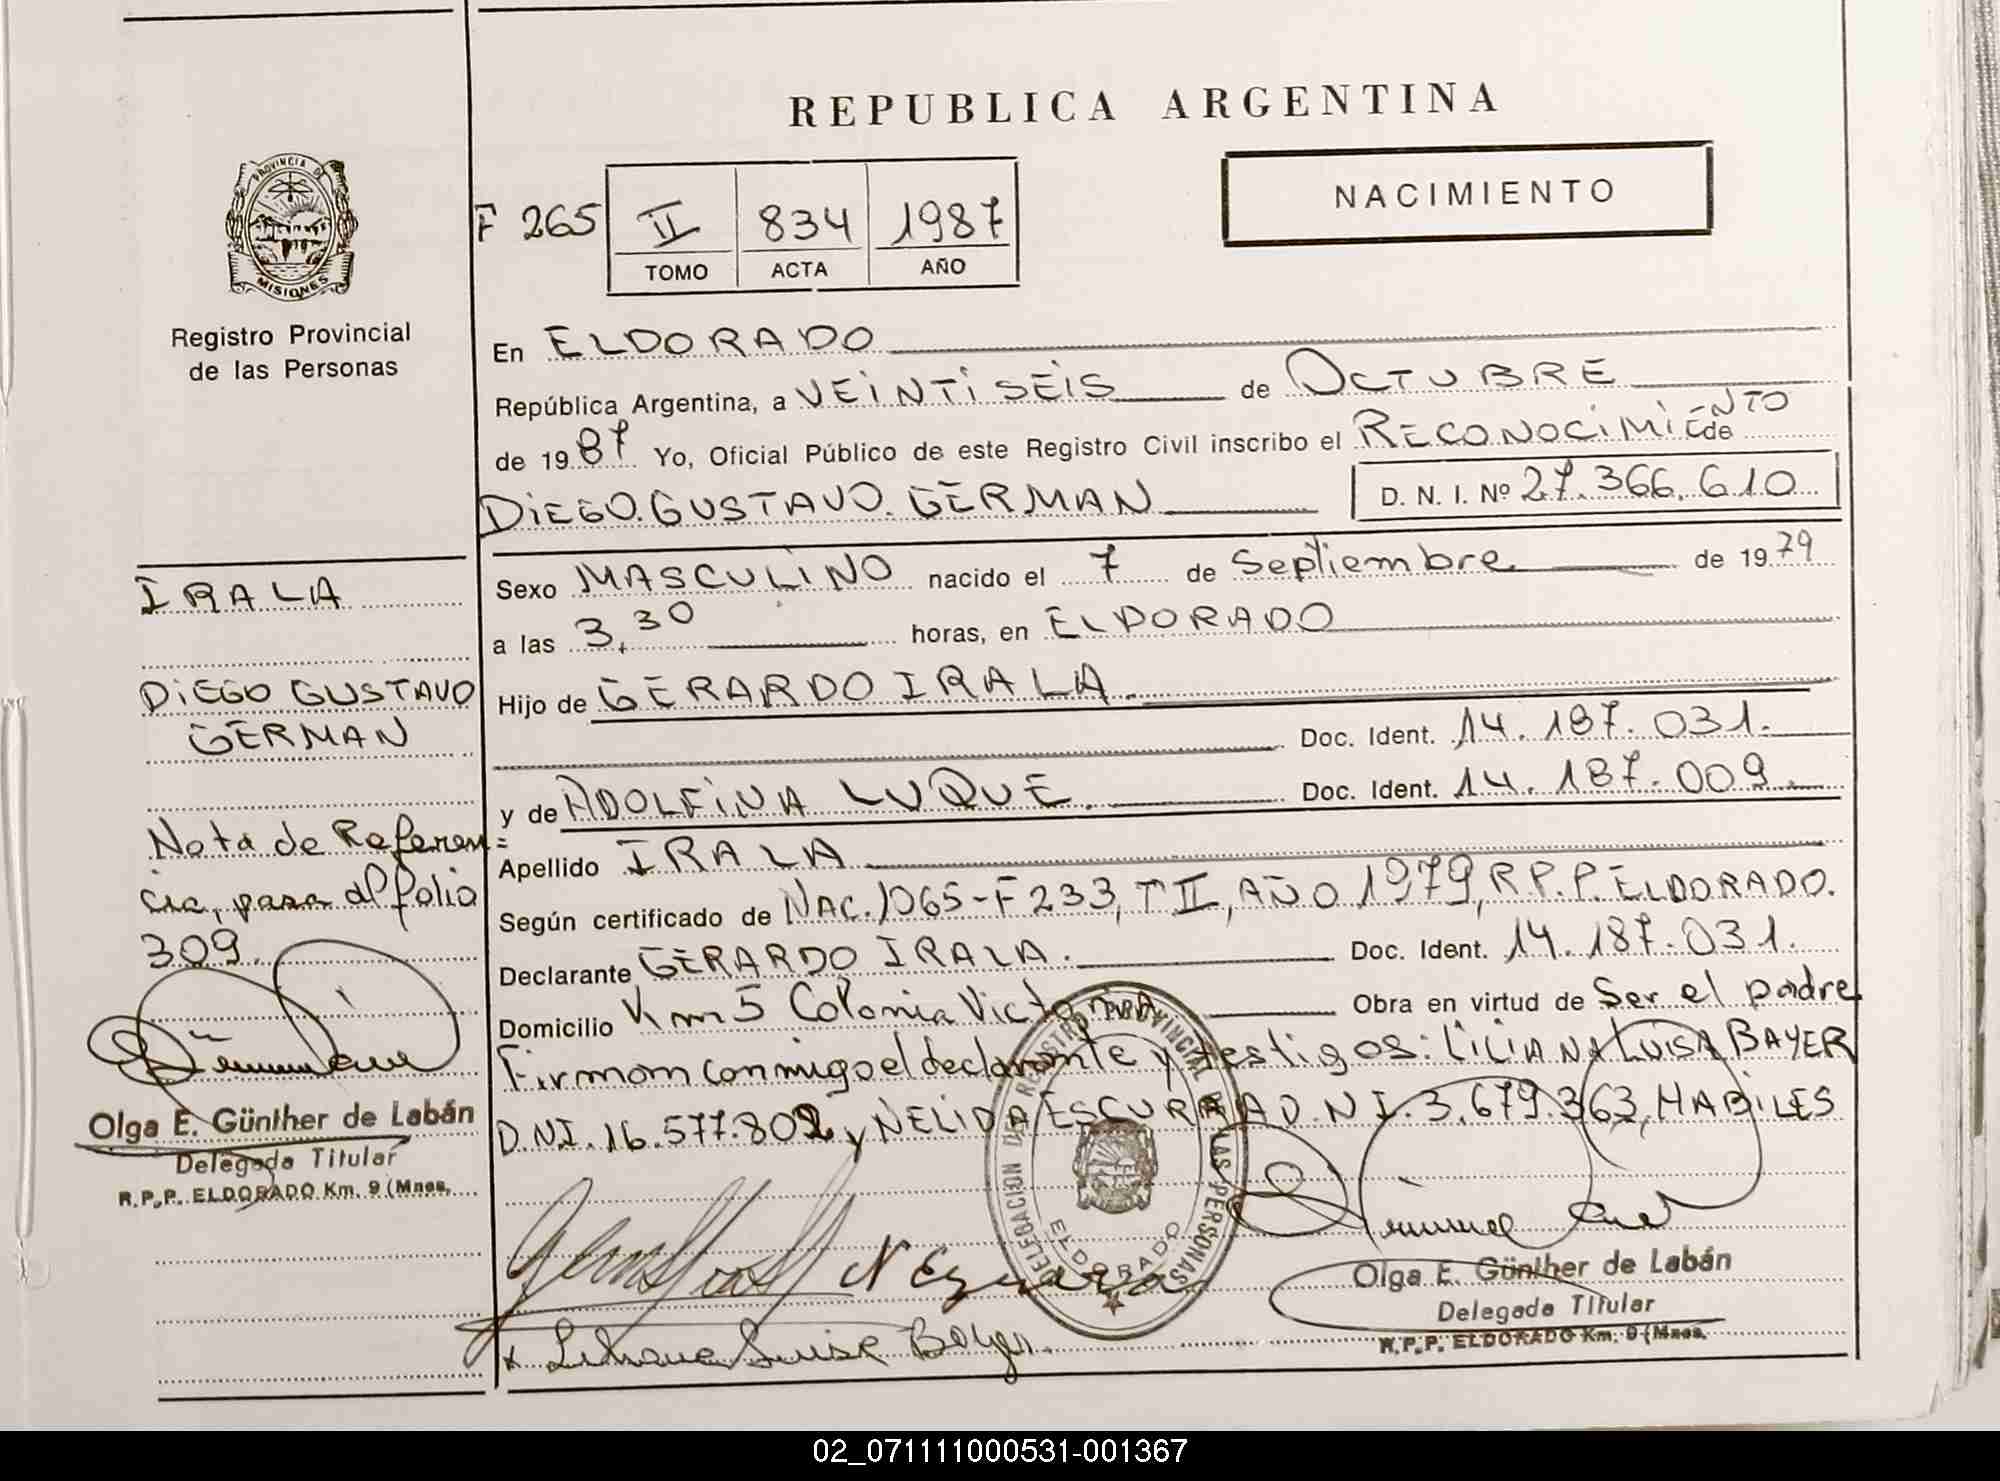 REPUBLICA ARGENTINA
PROVINCIA DE
MISIONES
Registro Provincial
de las Personas
NACIMIENTO
F 265 II 834 1987
TOMO ACTA AÑO
En ELDORADO
República Argentina, a VEINTISEIS de OCTUBRE
de 1987 Yo, Oficial Público de este Registro Civil inscribo el RECONOCIMIENTO de
DIEGO GUSTAVO GERMAN D. N. I. Nº 27.366.610
Sexo MASCULINO nacido el 7 de Septiembre de 1979
a las 3,30 horas, en ELDORADO
Hijo de GERARDO IRALA.
Doc. Ident. 14.187.031.
y de ADOLFINA LUQUE. Doc. Ident. 14.187.009.
Apellido IRALA
Según certificado de NAC. 1065-F 233, Tº II, AÑO 1979, R.P.P. ELDORADO.
Declarante GERARDO IRALA. Doc. Ident. 14.187.031.
Domicilio Km 5 Colonia Victoria Obra en virtud de Ser el padre
Firman conmigo el declarante y testigos: LILIANA LUISA BAYER
D.N.I. 16.577.802 y NELIDA ESCURRA D.N.I. 3.679.363, HABILES
IRALA
DIEGO GUSTAVO
GERMAN
Nota de Referen=
cia, pasa al folio
309.
Olga E. Günther de Labán
Delegada Titular
R.P.P. ELDORADO Km. 9 (Mnes.
DELEGACION DEL REGISTRO PROVINCIAL DE LAS PERSONAS
ELDORADO
Olga E. Günther de Labán
Delegada Titular
R.P.P. ELDORADO Km. 9 (Mnes.
02_071111000531-001367